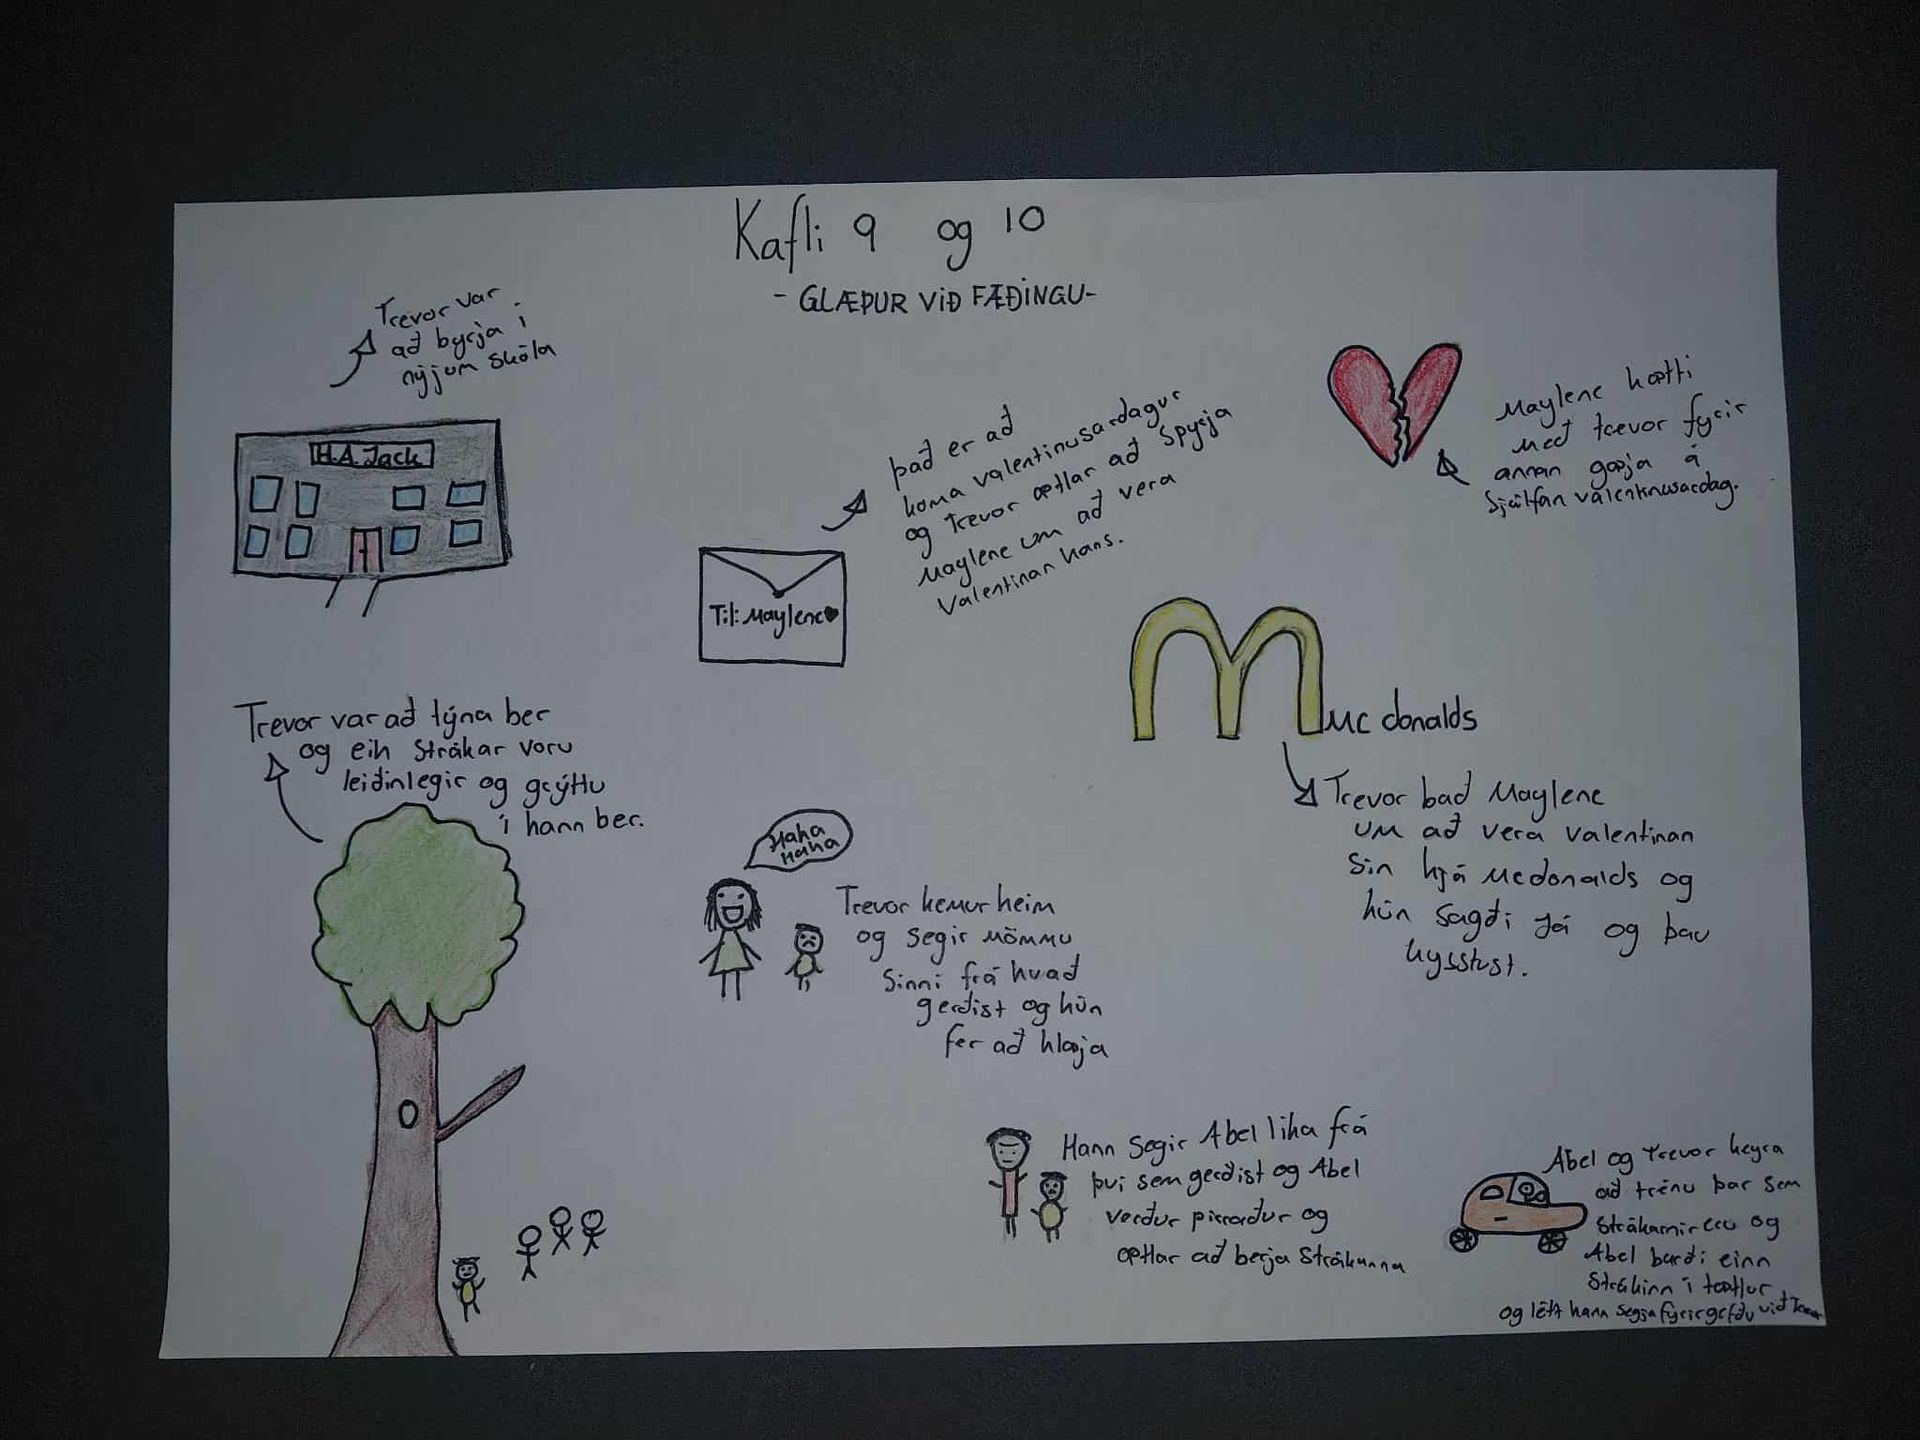 Kafli 9 og 10
- GLÆPUR VIÐ FÆÐINGU-
Trevor var
að byrja í
nýjum skóla
H.A. Jack
það er að
koma valentínusardagur
og trevor ætlar að spyrja
Maylene um að vera
Valentínan hans.
Til: Maylene
Maylene hætti
með trevor fyrir
annan gæja á
sjálfan valentínusardag.
Mc donalds
Trevor bað Maylene
um að vera valentínan
sín hjá Mcdonalds og
hún sagði Já og þau
kysstust.
Trevor var að týna ber
og eih strákar voru
leiðinlegir og grýttu
í hann ber.
Haha
Haha
Trevor kemur heim
og segir mömmu
sinni frá hvað
gerðist og hún
fer að hlæja
Hann segir Abel líka frá
því sem gerðist og Abel
verður pirraður og
ætlar að berja strákanna
Abel og Trevor keyra
að trénu þar sem
strákarnir eru og
Abel barði einn
strákinn í tætlur
og létt hann segja fyrirgefðu við